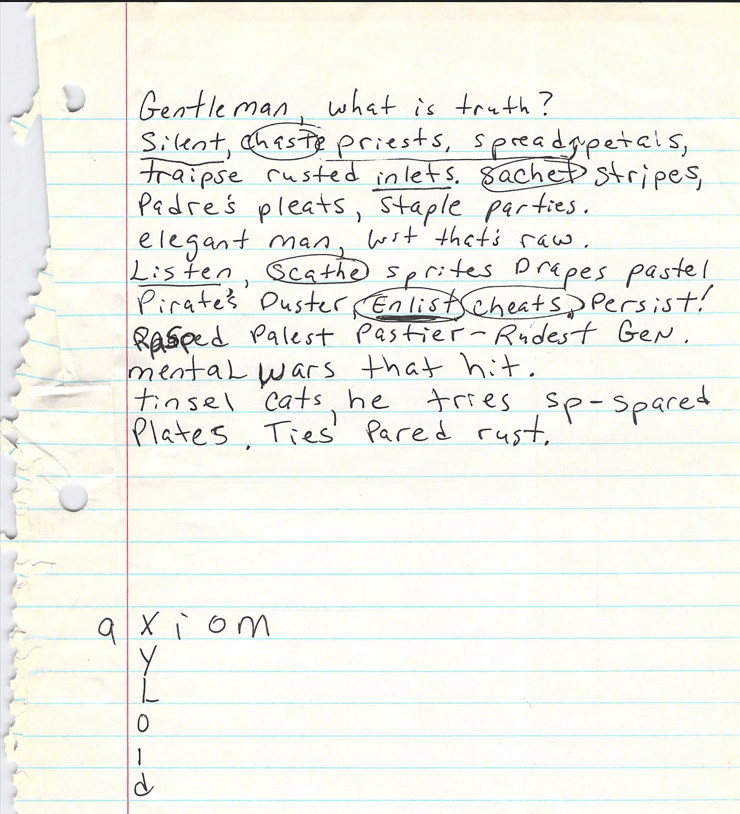 Gentleman, what is truth?
Silent, chaste priests, spread petals,
traipse rusted inlets. Sachet stripes,
Padre's pleats, staple parties.
elegant man, wit that's raw.
Listen, Scathe sprites Drapes pastel
Pirate's Duster, Enlist cheats, Persist!
Rasped Palest Pastier - Rudest Gen.
mental wars that hit.
tinsel cats, he tries sp-spared
Plates. Ties' Pared rust.
axiom
y
L
o
i
d